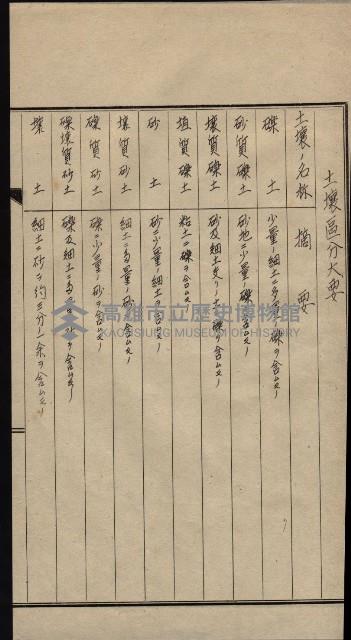 土壤區分大要
土壤ノ名称 摘要
礫土 少量ノ細土ニ多量ノ礫ヲ含ムモノ
砂質礫土 砂地ニ少量ノ礫ヲ含ムモノ
壤質礫土 砂及細土ニ礫ヲ含ムモノ
埴質礫土 粘土ニ礫ヲ含ムモノ
砂土 砂ニ少量ノ細土ヲ含ムモノ
壤質砂土 細土ニ多量ノ砂ヲ含ムモノ
礫質砂土 礫ニ少量ノ砂ヲ含ムモノ
礫壤質砂土 礫及細土ニ多量ノ砂ヲ含ムモノ
壤土 細土ニ砂ヲ約三分ノ余ヲ含ムモノ
高雄市立歷史博物館
KAOHSIUNG MUSEUM OF HISTORY